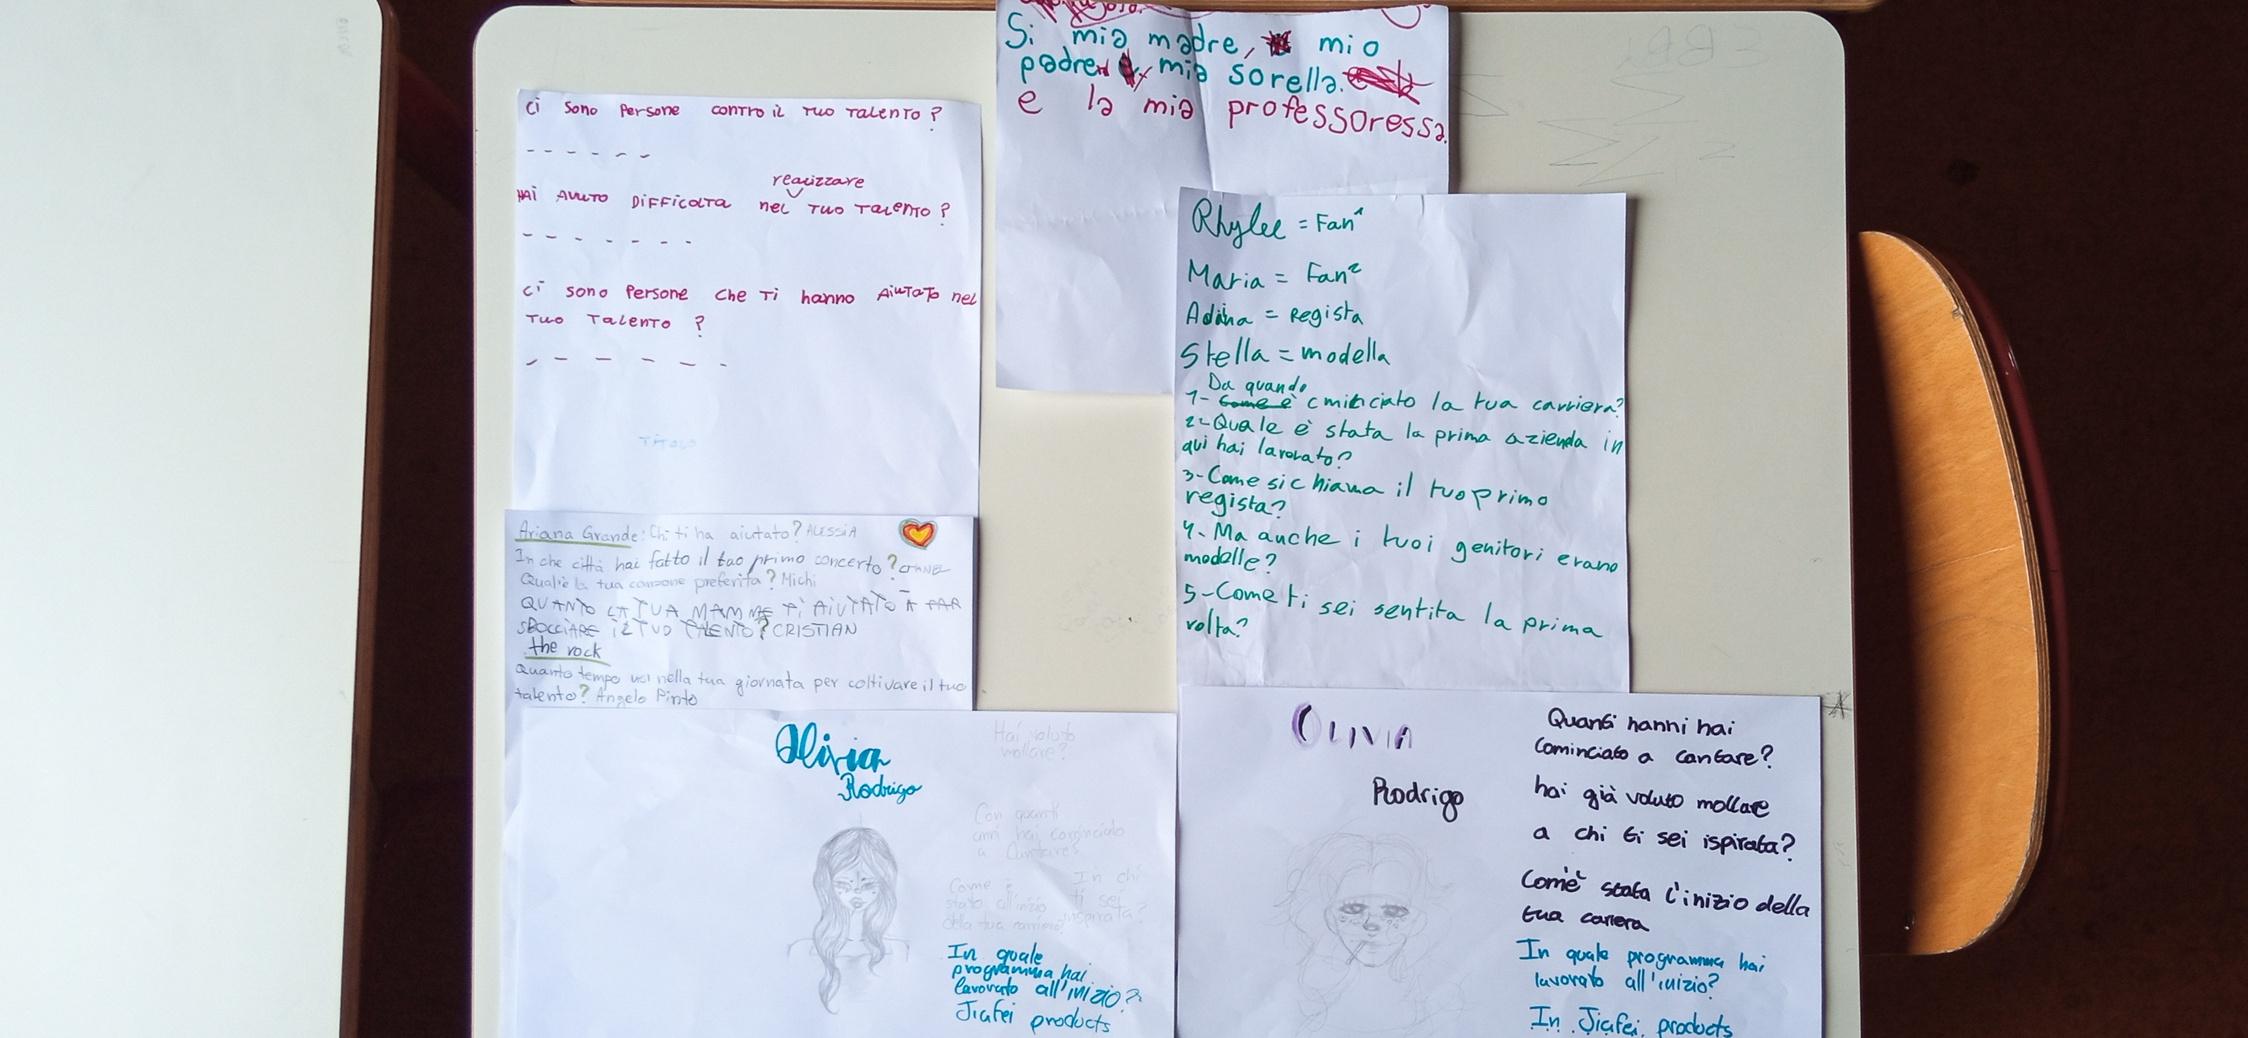 Si mia madre, mio
padre, mia sorella.
e la mia professoressa.
Ci sono Persone contro il Tuo Talento?
HAi AVUTO DiFFicolTA nel realizzare TUO TALENTO?
Ci sono Persone che Ti hanno AiuTaTo nel
Tuo Talento ?
TiTolo
Rhylee = Fan¹
Maria = Fan²
Adina = Regista
Stella = modella
Da quando
1- Come è cminciato la tua carriera?
2-Quale è stata la prima azienda in
qui hai lavorato?
3-Come si chiama il tuo primo
regista?
4- Ma anche i tuoi genitori erano
modelle?
5-Come ti sei sentita la prima
volta?
Ariana Grande: Chi ti ha aiutato? ALESSIA
In che città hai fatto il tuo primo concerto?
Qual'è la tua canzone preferita? Michi
QUANTO LA TUA MAMMA Ti AiUTATO A FAR
SBOCCiARE iL TUO TALENTO? CRISTIAN
the rock
Quanto tempo usi nella tua giornata per coltivare il tuo
talento? Angelo Pinto
Olivia
Rodrigo
Hai voluto
mollare?
Con quanti
anni hai cominciato
a Cantare?
Come è
stato all'inizio
della tua carriera?
In chi
ti sei
inspirata?
In quale
programma hai
lavorato all'inizio?
Jiafei products
OLIVIA
Rodrigo
Quanti hanni hai
cominciato a cantare?
hai già voluto mollare
a chi ti sei ispirata?
Com'è stata l'inizio della
tua carrera
In quale programma hai
lavorato all'inizio?
In Jiafei products